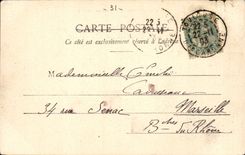 31
CARTE POSTALE
Ce côté est exclusivement réservé à l'adresse
Mademoiselle Emilie
34 rue Senac
Marseille
B^ches du Rhône